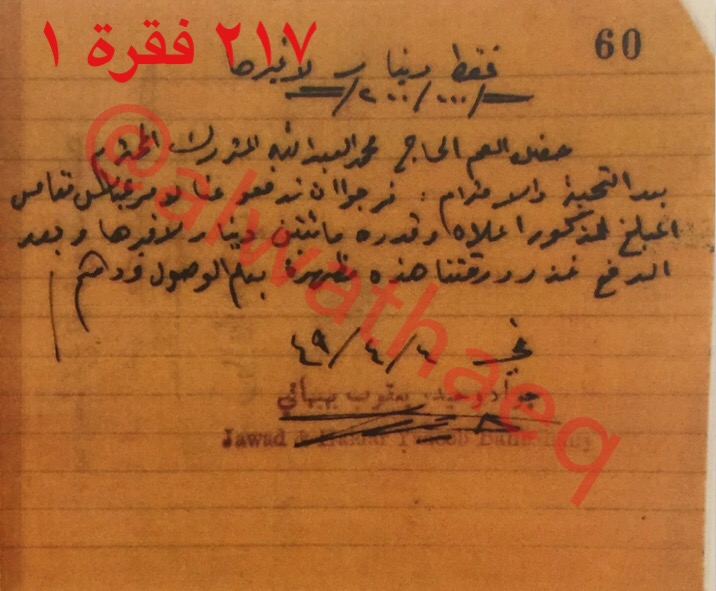 ٢١٧ فقرة ١
60
فقط دينار لا غيرها
/٢٠٠/٠٠٠/
العم الحاج محمد العبدالله المتروك المحترم
بعد التحية والاحترام : نرجوا ان تدفعو عنا
المبلغ المذكور اعلاه وقدره مائتين دينار لا غيرها وبعد
الدفع خذو ورقتنا هذه مظهرة بعلم الوصول ودمتم
في ٤/٤/٤٩
جواد وحيدر يعقوب بهبهاني
Jawad & Haidar Yacoob Behbehani
@alwathaeq